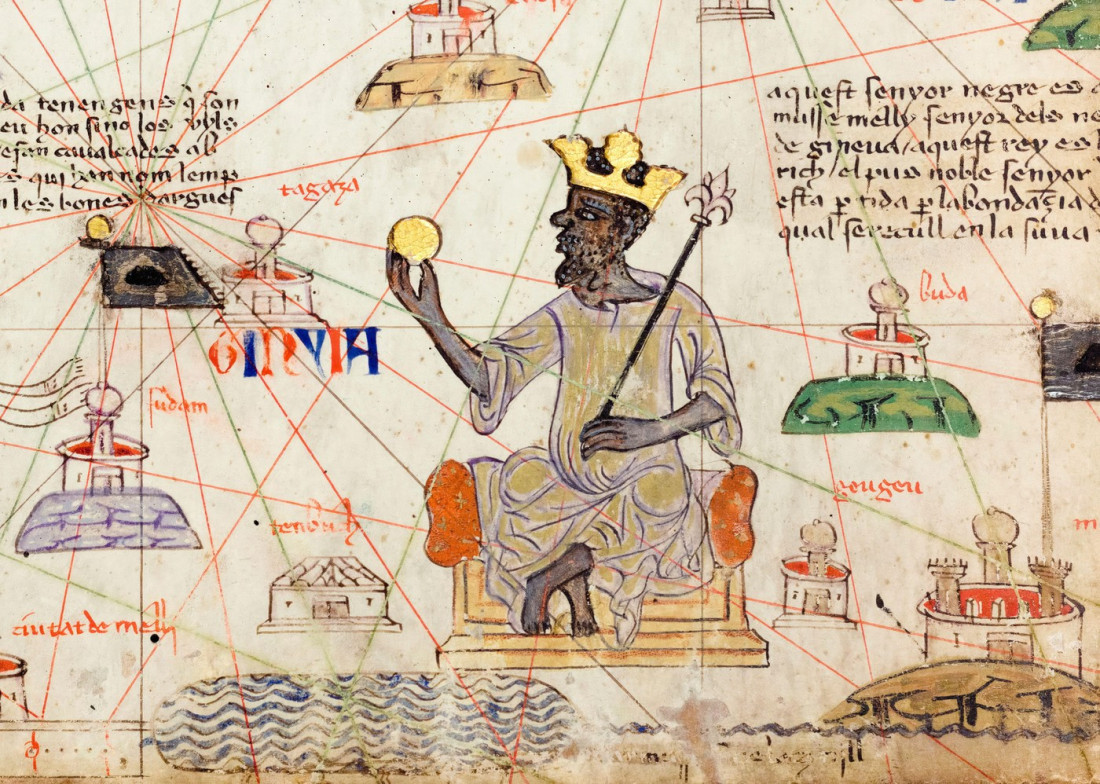 da tenen gens q̃ son
eu hon sino los uyls
caualcades ab
qui han nom
les bones dargues
tagaza
GINYIA
sudam
tenbuch
ciutat de melly
aquest senyor negre es a
musse melly senyor dels ne
de gineua aquest rey es l
rich el pus noble senyor
esta ꝑtida ꝑ labondaçia d
qual se recull en la suua
buda
geugeu
m